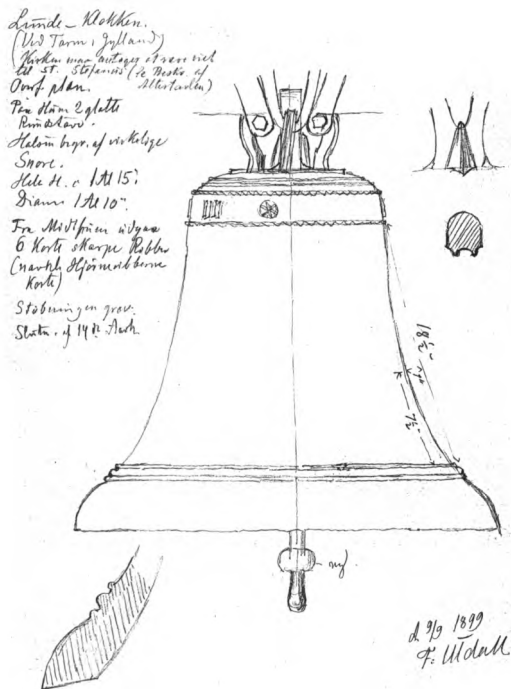 Lunde-Klokken.
(Ved Tarm, Jylland)
Kirken maa antages at være viet
til St. Stefanus (se Beskr. af
Altertavlen)
Overf. plan.
Paa Slagr. 2 glatte
Rundstave.
Halsen begr. af virkelige
Snore.
Hele H. c 1 Al 15"
Diam 1 Al 10".
Fra Midt udgaa
6 korte skarpe Ribber
(navnl. Hjørneribberne
korte)
Støbningen grov.
Slutn. af 14de Aarh
18 1/2"
7 1/2"
ny
d. 9/9 1899
F. Uldall